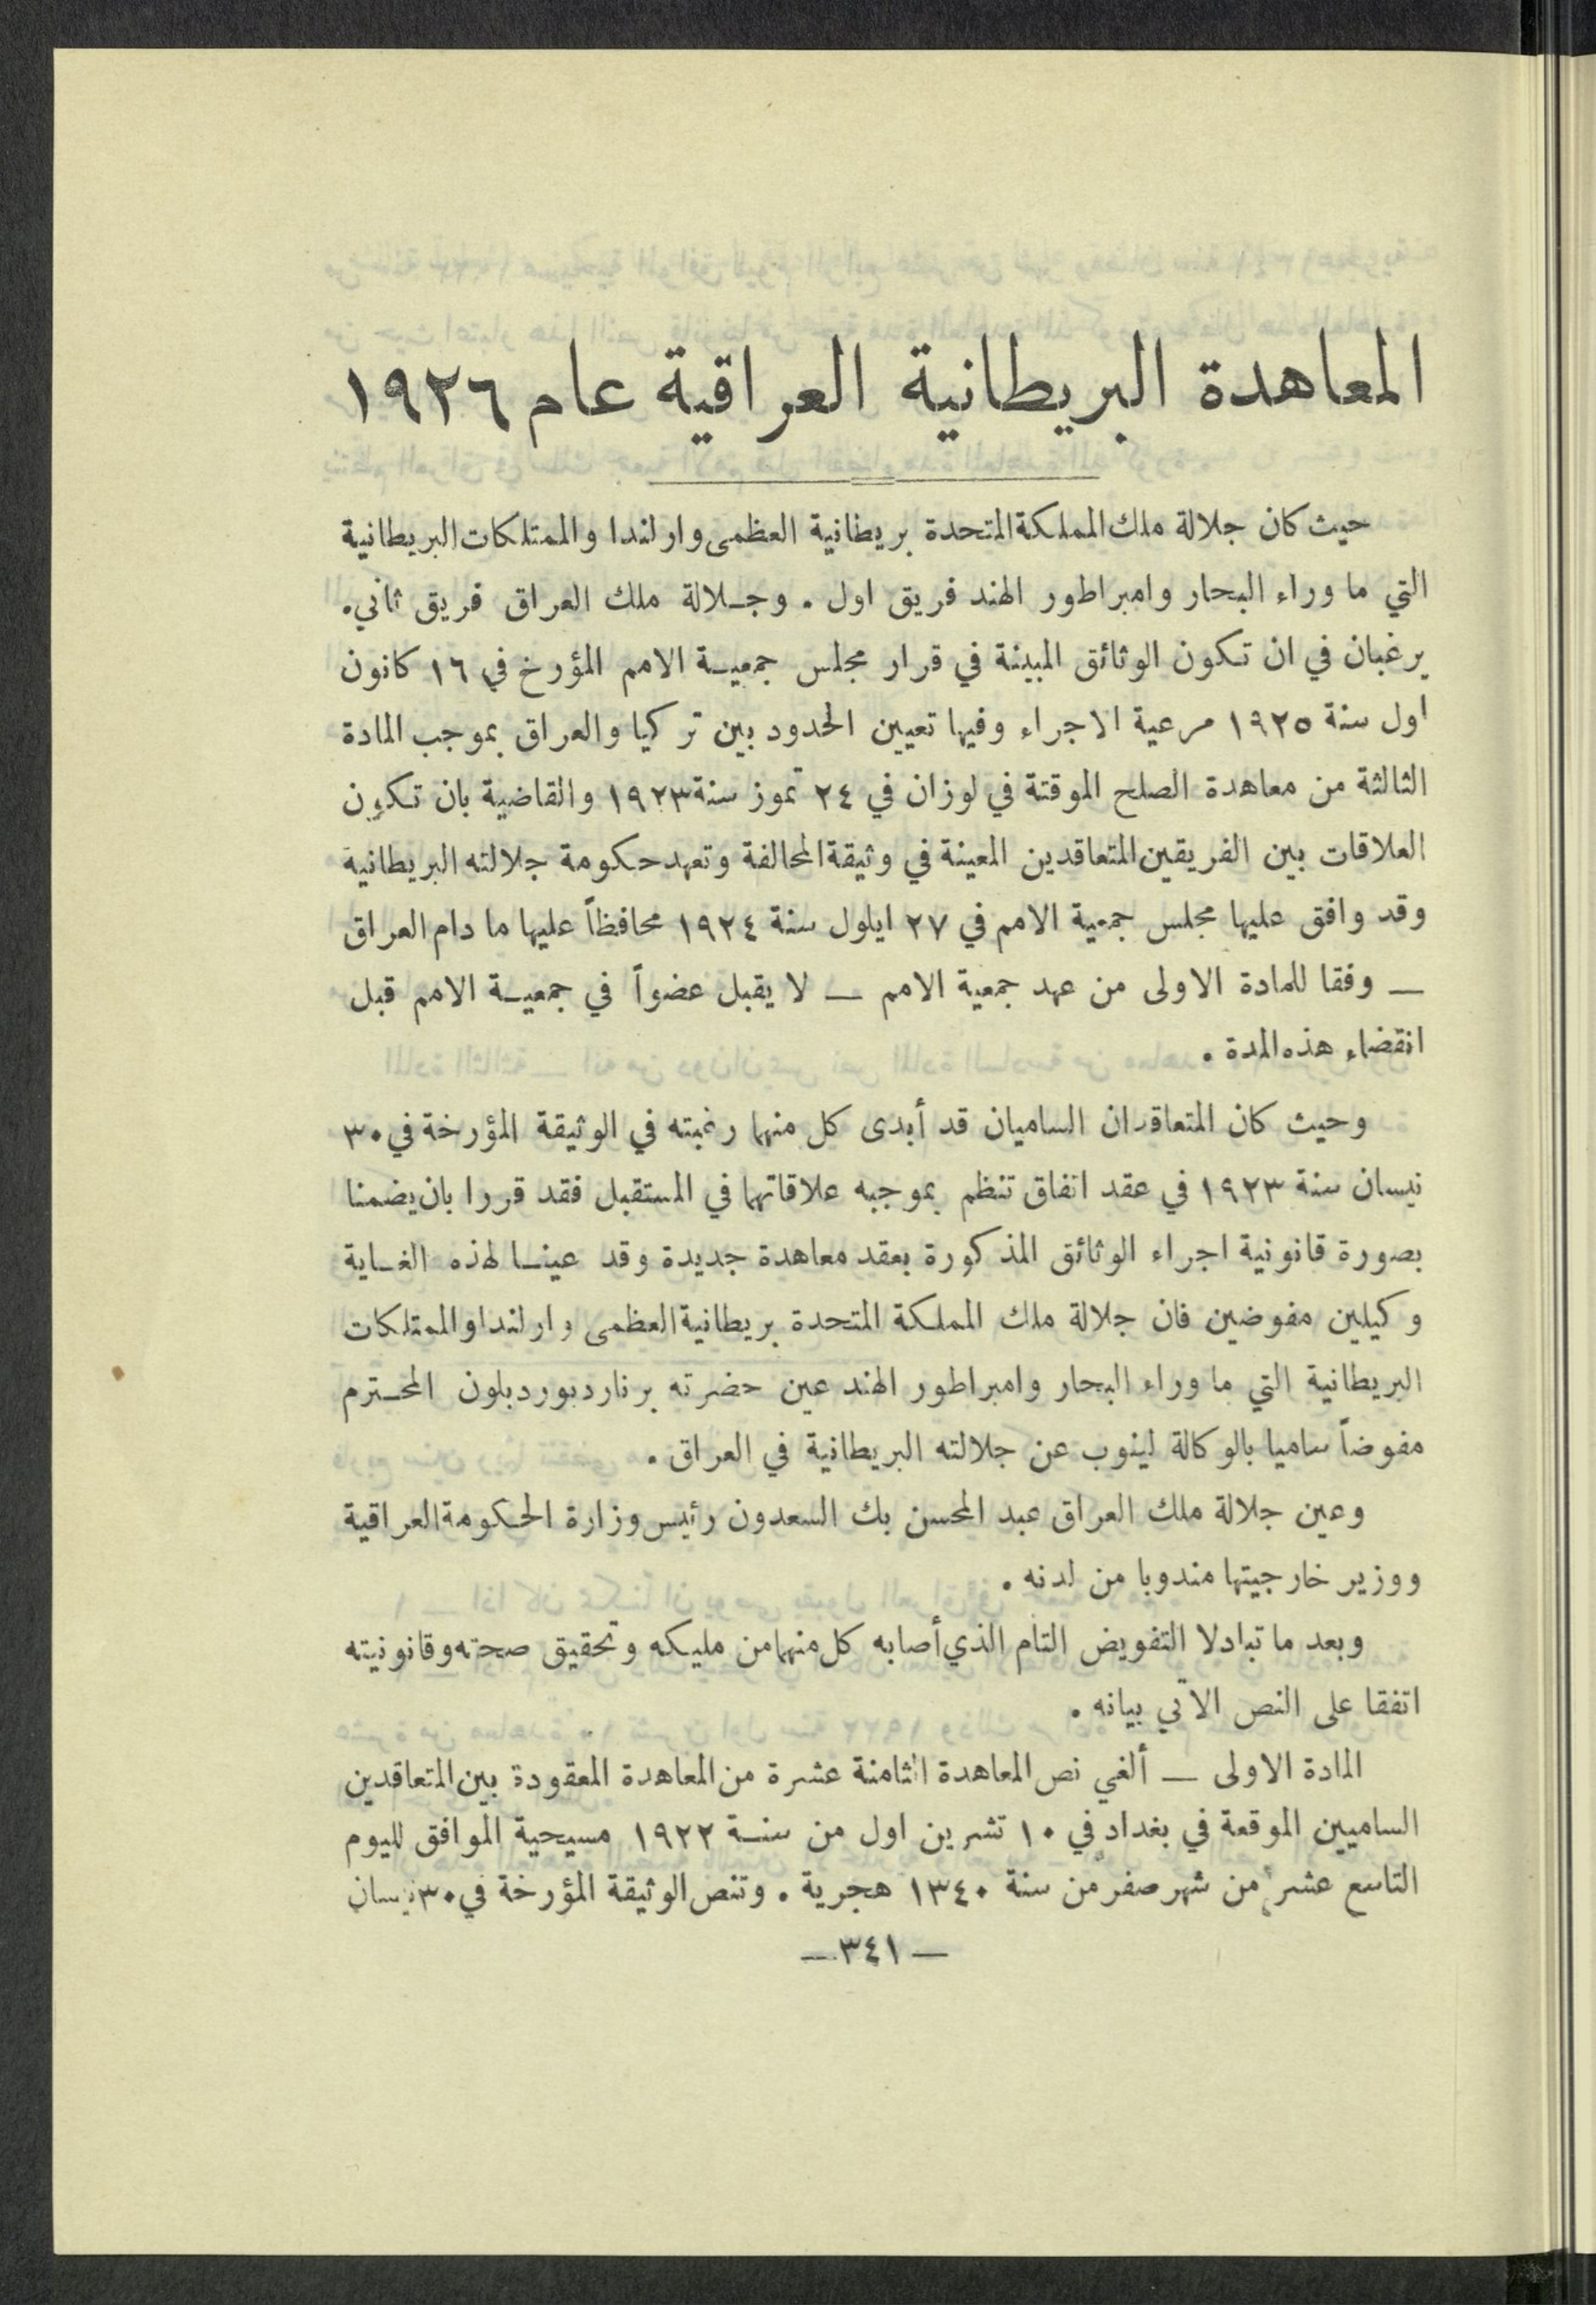 المعاهدة البريطانية العراقية عام ١٩٢٦
حيث كان جلالة ملك المملكة المتحدة بريطانية العظمى وارلندا والممتلكات البريطانية
التي ما وراء البحار وامبراطور الهند فريق اول . وجلالة ملك العراق فريق ثاني .
يرغبان في ان تكون الوثائق المبينة في قرار مجلس جمعية الامم المؤرخ في ١٦ كانون
اول سنة ١٩٢٥ مرعية الاجراء وفيها تعيين الحدود بين تركيا والعراق بموجب المادة
الثالثة من معاهدة الصلح الموقتة في لوزان في ٢٤ تموز سنة ١٩٢٣ والقاضية بان تكون
العلاقات بين الفريقين المتعاقدين المعينة في وثيقة المحالفة وتعهد حكومة جلالته البريطانية
وقد وافق عليها مجلس جمعية الامم في ٢٧ ايلول سنة ١٩٢٤ محافظاً عليها ما دام العراق
— وفقا للمادة الاولى من عهد جمعية الامم — لا يقبل عضواً في جمعية الامم قبل
انقضاء هذه المدة .
وحيث كان المتعاقدان الساميان قد أبدى كل منهما رغبته في الوثيقة المؤرخة في ٣٠
نيسان سنة ١٩٢٣ في عقد اتفاق تنظم بموجبه علاقاتهما في المستقبل فقد قررا بان يضمنا
بصورة قانونية اجراء الوثائق المذكورة بعقد معاهدة جديدة وقد عينا لهذه الغاية
وكيلين مفوضين فان جلالة ملك المملكة المتحدة بريطانية العظمى وارلندا والممتلكات
البريطانية التي ما وراء البحار وامبراطور الهند عين حضرته برنارد بوردبلون المحترم
مفوضاً ساميا بالوكالة لينوب عن جلالته البريطانية في العراق .
وعين جلالة ملك العراق عبد المحسن بك السعدون رئيس وزارة الحكومة العراقية
ووزير خارجيتها مندوبا من لدنه .
وبعد ما تبادلا التفويض التام الذي أصابه كل منهما من مليكه وتحقيق صحته وقانونيته
اتفقا على النص الآتي بيانه .
المادة الاولى — ألغي نص المعاهدة الثامنة عشرة من المعاهدة المعقودة بين المتعاقدين
الساميين الموقعة في بغداد في ١٠ تشرين اول من سنة ١٩٢٢ مسيحية الموافق لليوم
التاسع عشر من شهر صفر من سنة ١٣٤٠ هجرية . وتنص الوثيقة المؤرخة في ٣٠ نيسان
— ٣٤١ —